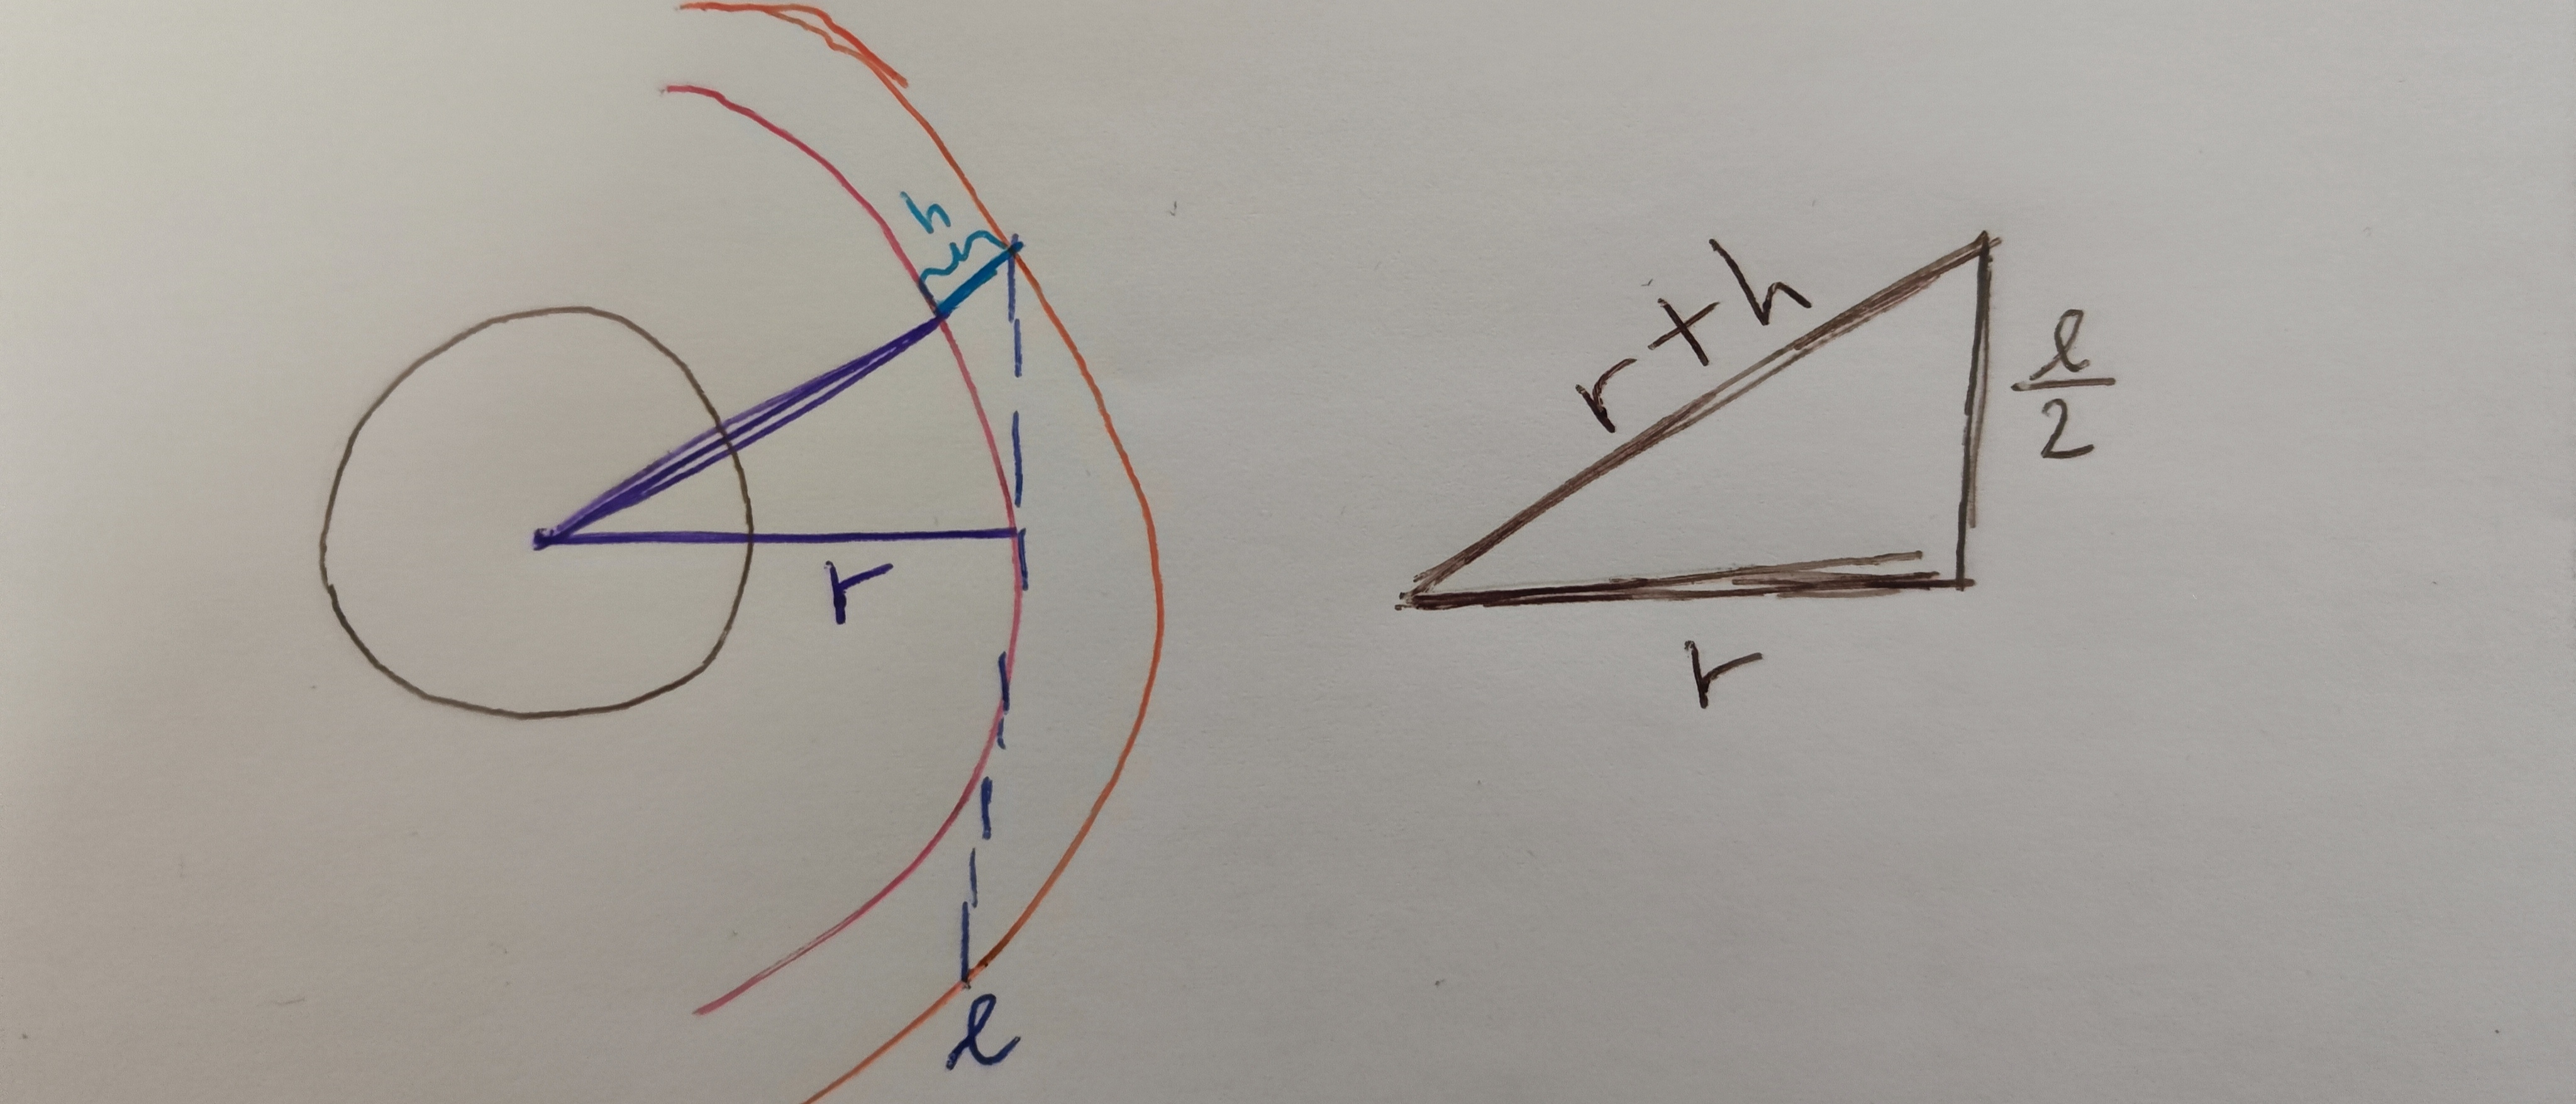 h
r
ℓ
r+h
ℓ/2
r